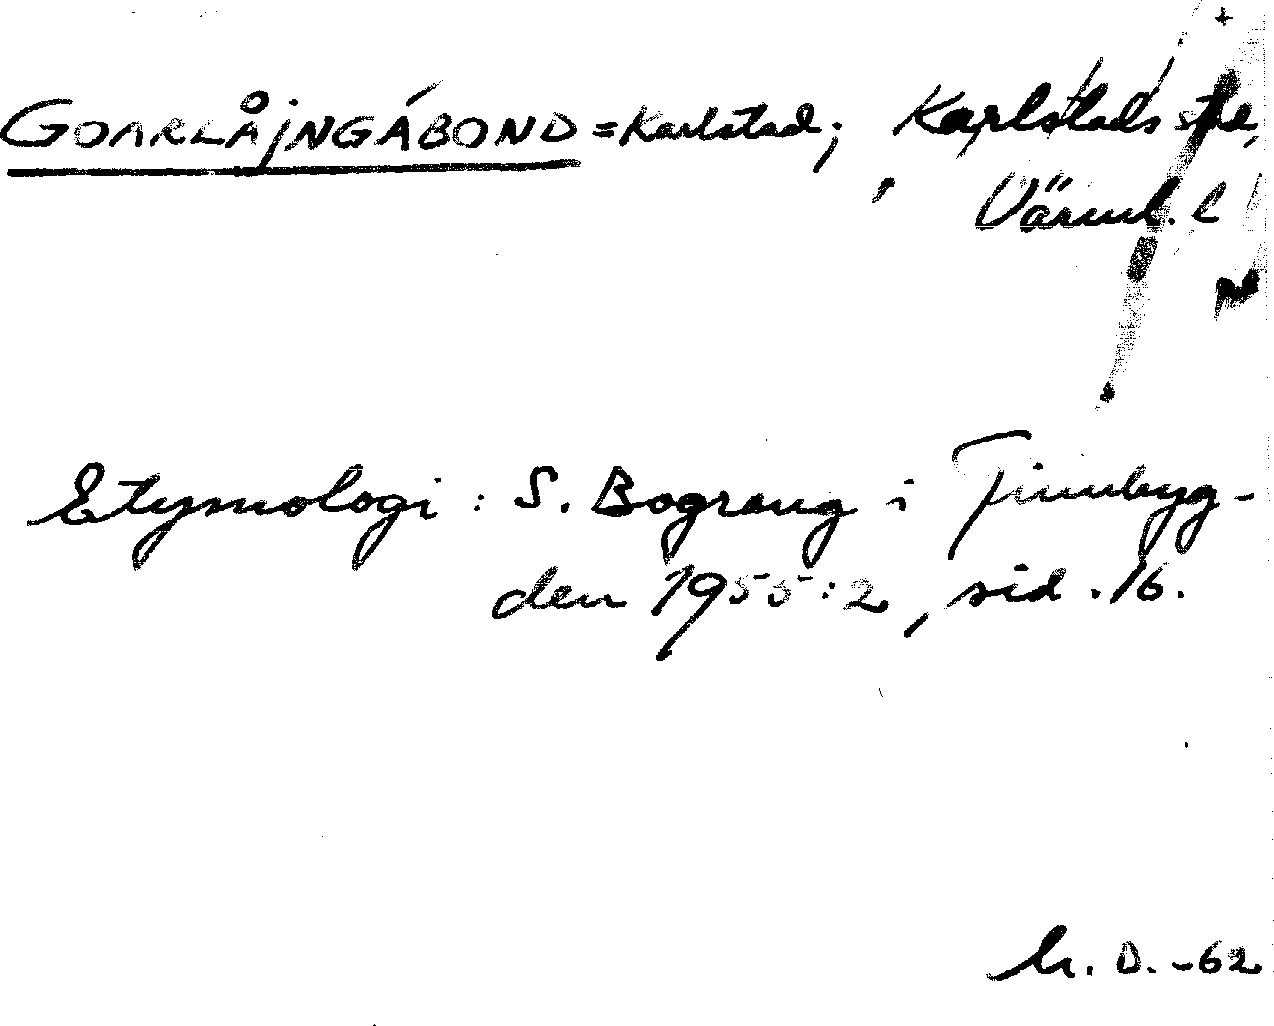 GOARLÅJNGÁBOND = Karlstad; Karlstads
Värml. l
Etymologi: S. Bograng i Finnbyg-
den 1955:2, sid. 16.
D. -62